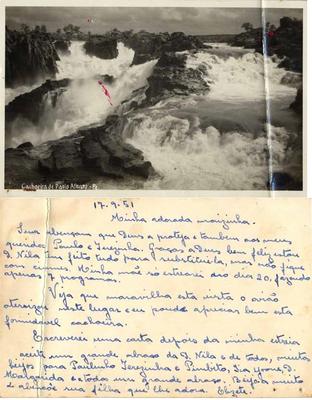 Cachoeira de Paulo Afonso - Pe
17.9.51
Minha adorada mãizinha.
Sua abençam que deus a proteja e tambem aos meus
queridos Paulo e Terezinha. Graças a Deus bem feliz estou
D. Nila tem feito tudo para substitui-la, mas não fique
com ciumes. Minha mãe só estrearei no dia 20, fazendo
apenas programas.
Veja que maravilha esta vista o avião
aterriza neste lugar e se pode apreciar bem esta
formidavel cachoeira.
Escreverei uma carta depois da minha estreia
aceite um grande abraço da D. Nila e de todos, muitos
beijos para Paulinho Terezinha e Paulito, Lia Yone, D.
Margarida e a todos um grande abraço. Beija-a muito
e abençõe sua filha que lhe adora. Elizete.